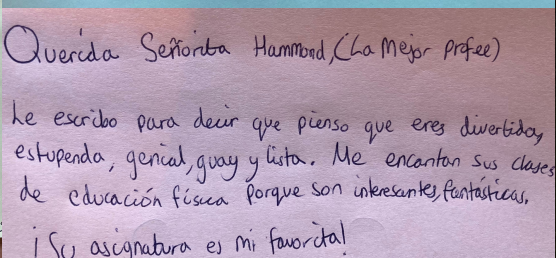 Querida Señorita Hammond, (La mejor profee)
Le escribo para decir que pienso que eres divertida,
estupenda, genial, guay y lista. Me encantan sus clases
de educación física porque son interesantes, fantásticas,
¡Su asignatura es mi favorita!